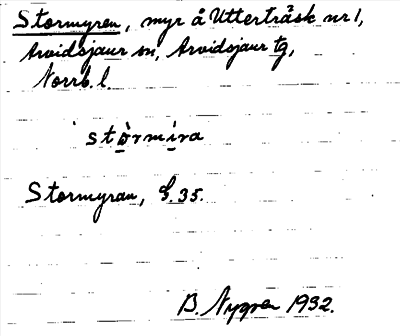 Stormyren, myr å Utterträsk nr 1,
Arvidsjaur sn, Arvidsjaur tg,
Norrb. l.
`stòrmira
Stormyran, G. 35.
B. Nygren 1932.